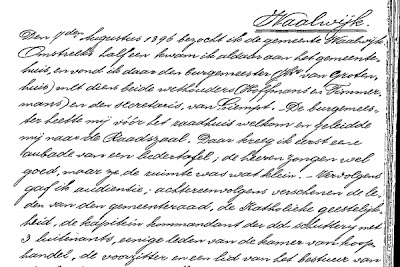 Waalwijk.
Den 1sten Augustus 1896 bezocht ik de gemeente Waalwijk.
Omstreeks half een kwam ik aldaar aan het gemeente-
huis, en vond ik daar den burgemeester (Mr van Groten-
huis) met diens beide wethouders (Hoffmans en Timmer-
mans) en den secretaris, van Liempt. De burgemees-
ter heette mij vóór het raadhuis welkom en geleidde
mij naar de Raadszaal. Daar kreeg ik eerst eene
aubade van een liedertafel; de heeren zongen wel
goed, maar ze de ruimte was wat klein. Vervolgens
gaf ik audientie; achtereenvolgens verschenen de le-
den van den gemeenteraad, de Katholieke geestelijk-
heid, de kapitein kommandant der dd. schutterij met
3 luitenants, eenige leden van de kamer van koop-
handel, de voorzitter en een lid van het bestuur van